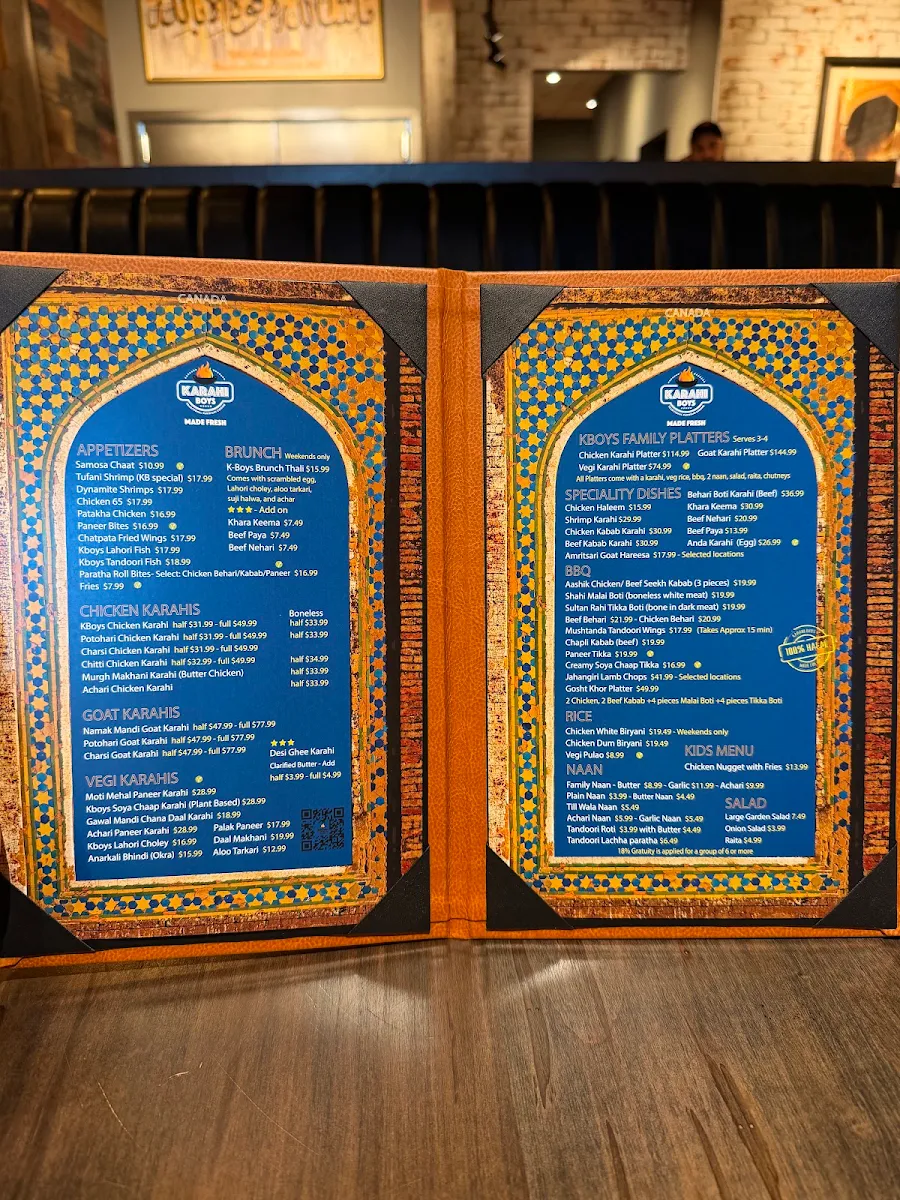 CANADA
KARAHI
BOYS
MADE FRESH
APPETIZERS
Samosa Chaat $10.99
Tufani Shrimp (KB special) $17.99
Dynamite Shrimps $17.99
Chicken 65 $17.99
Patakha Chicken $16.99
Paneer Bites $16.99
Chatpata Fried Wings $17.99
Kboys Lahori Fish $17.99
Kboys Tandoori Fish $18.99
Paratha Roll Bites- Select: Chicken Behari/Kabab/Paneer $16.99
Fries $7.99
BRUNCH Weekends only
K-Boys Brunch Thali $15.99
Comes with scrambled egg,
Lahori choley, aloo tarkari,
suji halwa, and achar
- Add on
Khara Keema $7.49
Beef Paya $7.49
Beef Nehari $7.49
CHICKEN KARAHIS
Boneless
KBoys Chicken Karahi half $31.99 - full $49.99 half $33.99
Potohari Chicken Karahi half $31.99 - full $49.99 half $33.99
Charsi Chicken Karahi half $31.99 - full $49.99
Chitti Chicken Karahi half $32.99 - full $49.99 half $34.99
Murgh Makhani Karahi (Butter Chicken) half $33.99
Achari Chicken Karahi half $33.99
GOAT KARAHIS
Namak Mandi Goat Karahi half $47.99 - full $77.99
Potohari Goat Karahi half $47.99 - full $77.99
Charsi Goat Karahi half $47.99 - full $77.99
Desi Ghee Karahi
Clarified Butter - Add
half $3.99 - full $4.99
VEGI KARAHIS
Moti Mehal Paneer Karahi $28.99
Kboys Soya Chaap Karahi (Plant Based) $28.99
Gawal Mandi Chana Daal Karahi $18.99
Achari Paneer Karahi $28.99
Kboys Lahori Choley $16.99
Anarkali Bhindi (Okra) $15.99
Palak Paneer $17.99
Daal Makhani $19.99
Aloo Tarkari $12.99
CANADA
KARAHI
BOYS
MADE FRESH
KBOYS FAMILY PLATTERS Serves 3-4
Chicken Karahi Platter $114.99 Goat Karahi Platter $144.99
Vegi Karahi Platter $74.99
All Platters come with a karahi, veg rice, bbq, 2 naan, salad, raita, chutneys
SPECIALITY DISHES
Chicken Haleem $15.99
Shrimp Karahi $29.99
Chicken Kabab Karahi $30.99
Beef Kabab Karahi $30.99
Amritsari Goat Hareesa $17.99 - Selected locations
Behari Boti Karahi (Beef) $36.99
Khara Keema $30.99
Beef Nehari $20.99
Beef Paya $13.99
Anda Karahi (Egg) $26.99
BBQ
Aashik Chicken/ Beef Seekh Kabab (3 pieces) $19.99
Shahi Malai Boti (boneless white meat) $19.99
Sultan Rahi Tikka Boti (bone in dark meat) $19.99
Beef Behari $21.99 - Chicken Behari $20.99
Mushtanda Tandoori Wings $17.99 (Takes Approx 15 min)
Chapli Kabab (beef) $19.99
Paneer Tikka $19.99
Creamy Soya Chaap Tikka $16.99
Jahangiri Lamb Chops $41.99 - Selected locations
Gosht Khor Platter $49.99
2 Chicken, 2 Beef Kabab +4 pieces Malai Boti +4 pieces Tikka Boti
100% HALAL
RICE
Chicken White Biryani $19.49 - Weekends only
Chicken Dum Biryani $19.49
Vegi Pulao $8.99
KIDS MENU
Chicken Nugget with Fries $13.99
NAAN
Family Naan - Butter $8.99 - Garlic $11.99 - Achari $9.99
Plain Naan $3.99 - Butter Naan $4.49
Till Wala Naan $5.49
Achari Naan $5.99 - Garlic Naan $5.49
Tandoori Roti $3.99 with Butter $4.49
Tandoori Lachha paratha $6.49
SALAD
Large Garden Salad 7.49
Onion Salad $3.99
Raita $4.99
18% Gratuity is applied for a group of 6 or more